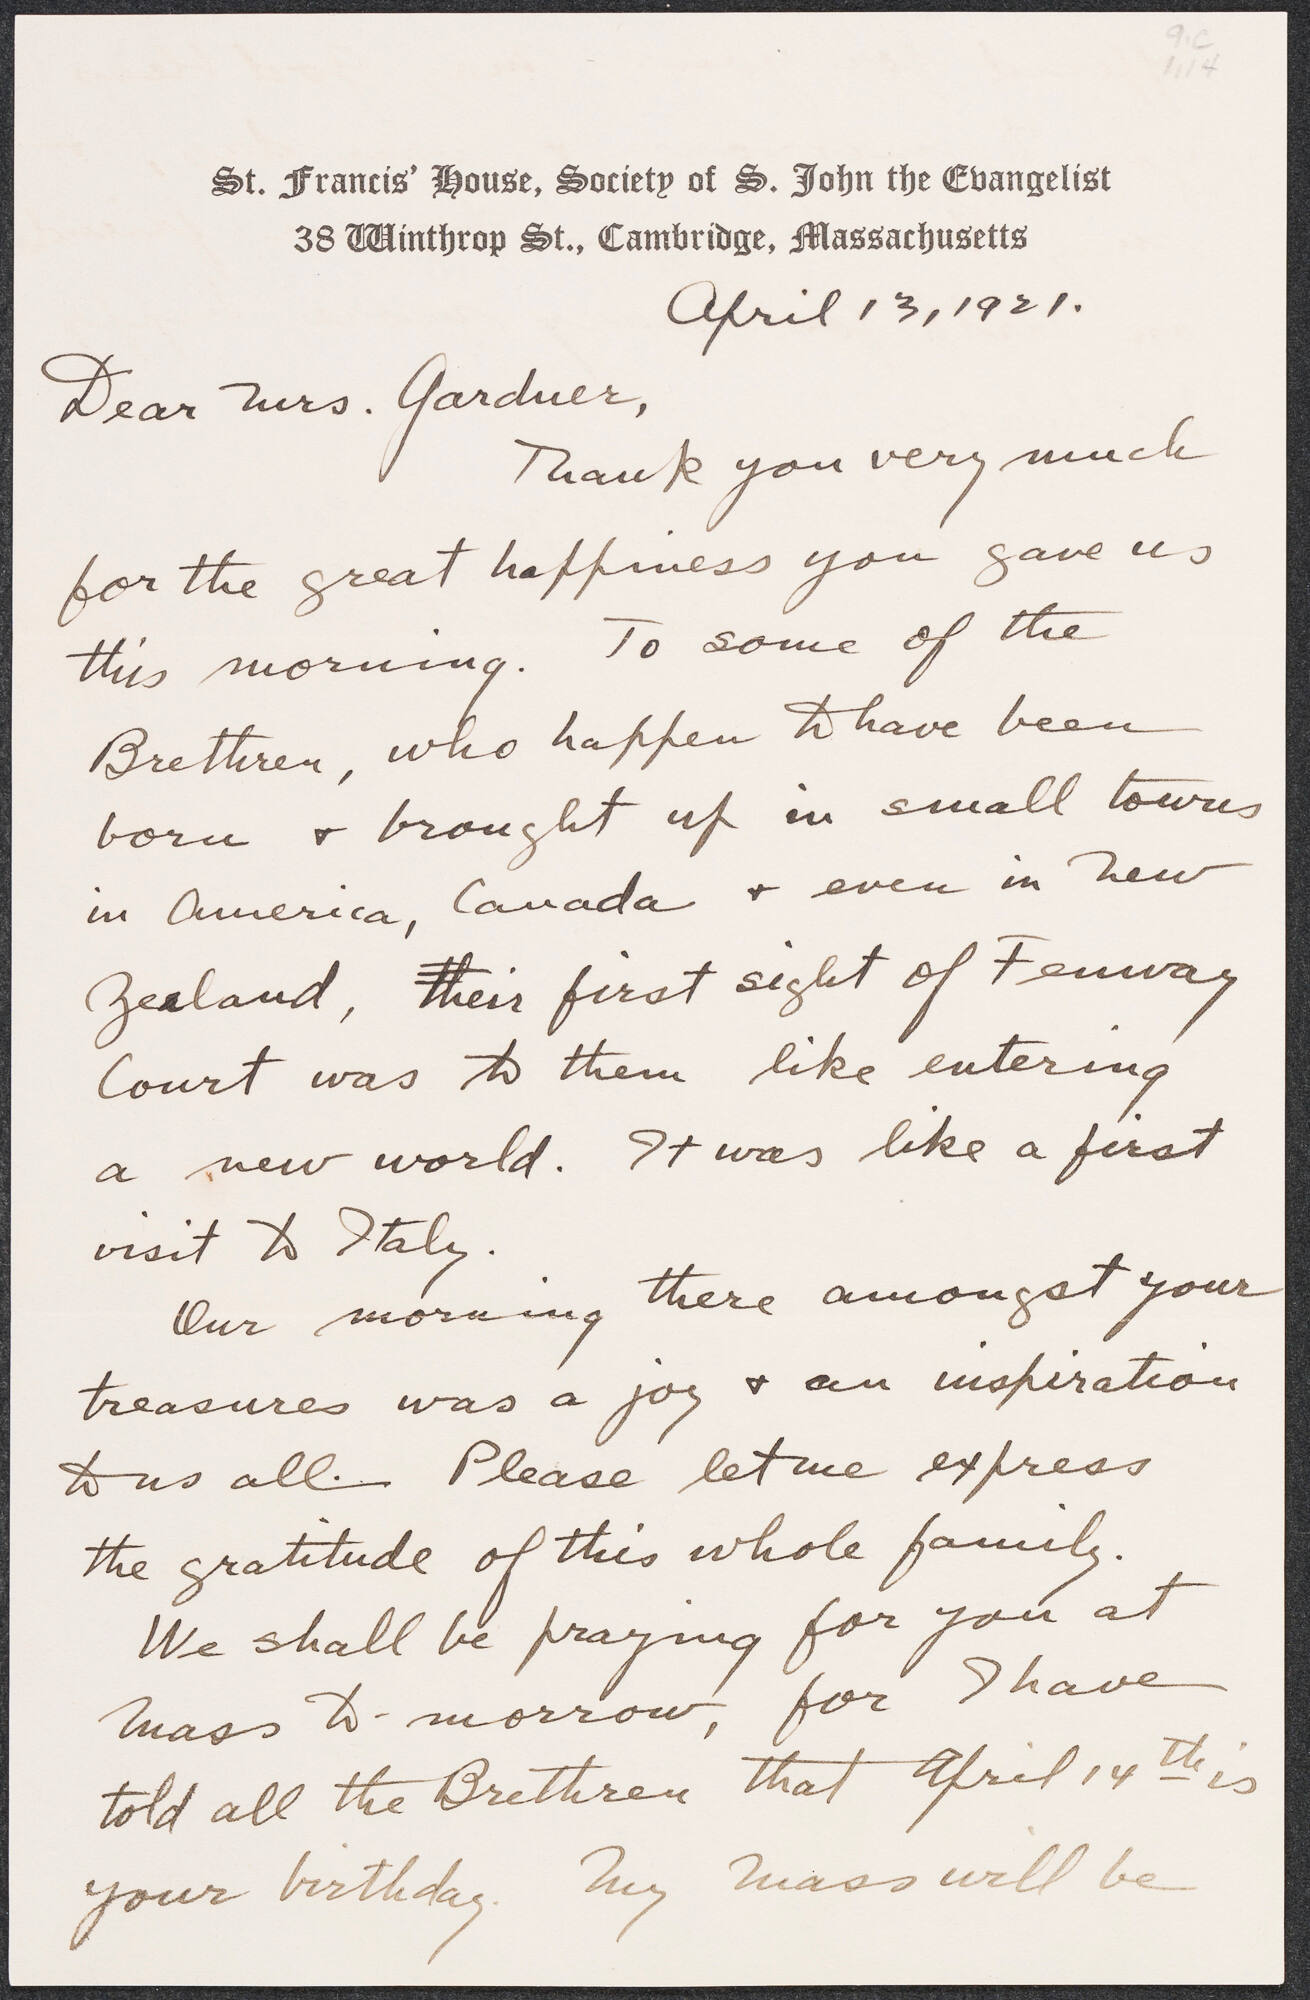 9.C
1.14
St. Francis' House, Society of S. John the Evangelist
38 Winthrop St., Cambridge, Massachusetts
April 13, 1921.
Dear Mrs. Gardner,
Thank you very much
for the great happiness you gave us
this morning. To some of the
Brethren, who happen to have been
born & brought up in small towns
in America, Canada & even in New
Zealand, their first sight of Fenway
Court was to them like entering
a new world. It was like a first
visit to Italy.
Our morning there amongst your
treasures was a joy & an inspiration
to us all. Please let me express
the gratitude of this whole family.
We shall be praying for you at
Mass to-morrow, for I have
told all the Brethren that April 14th is
your birthday. My Mass will be